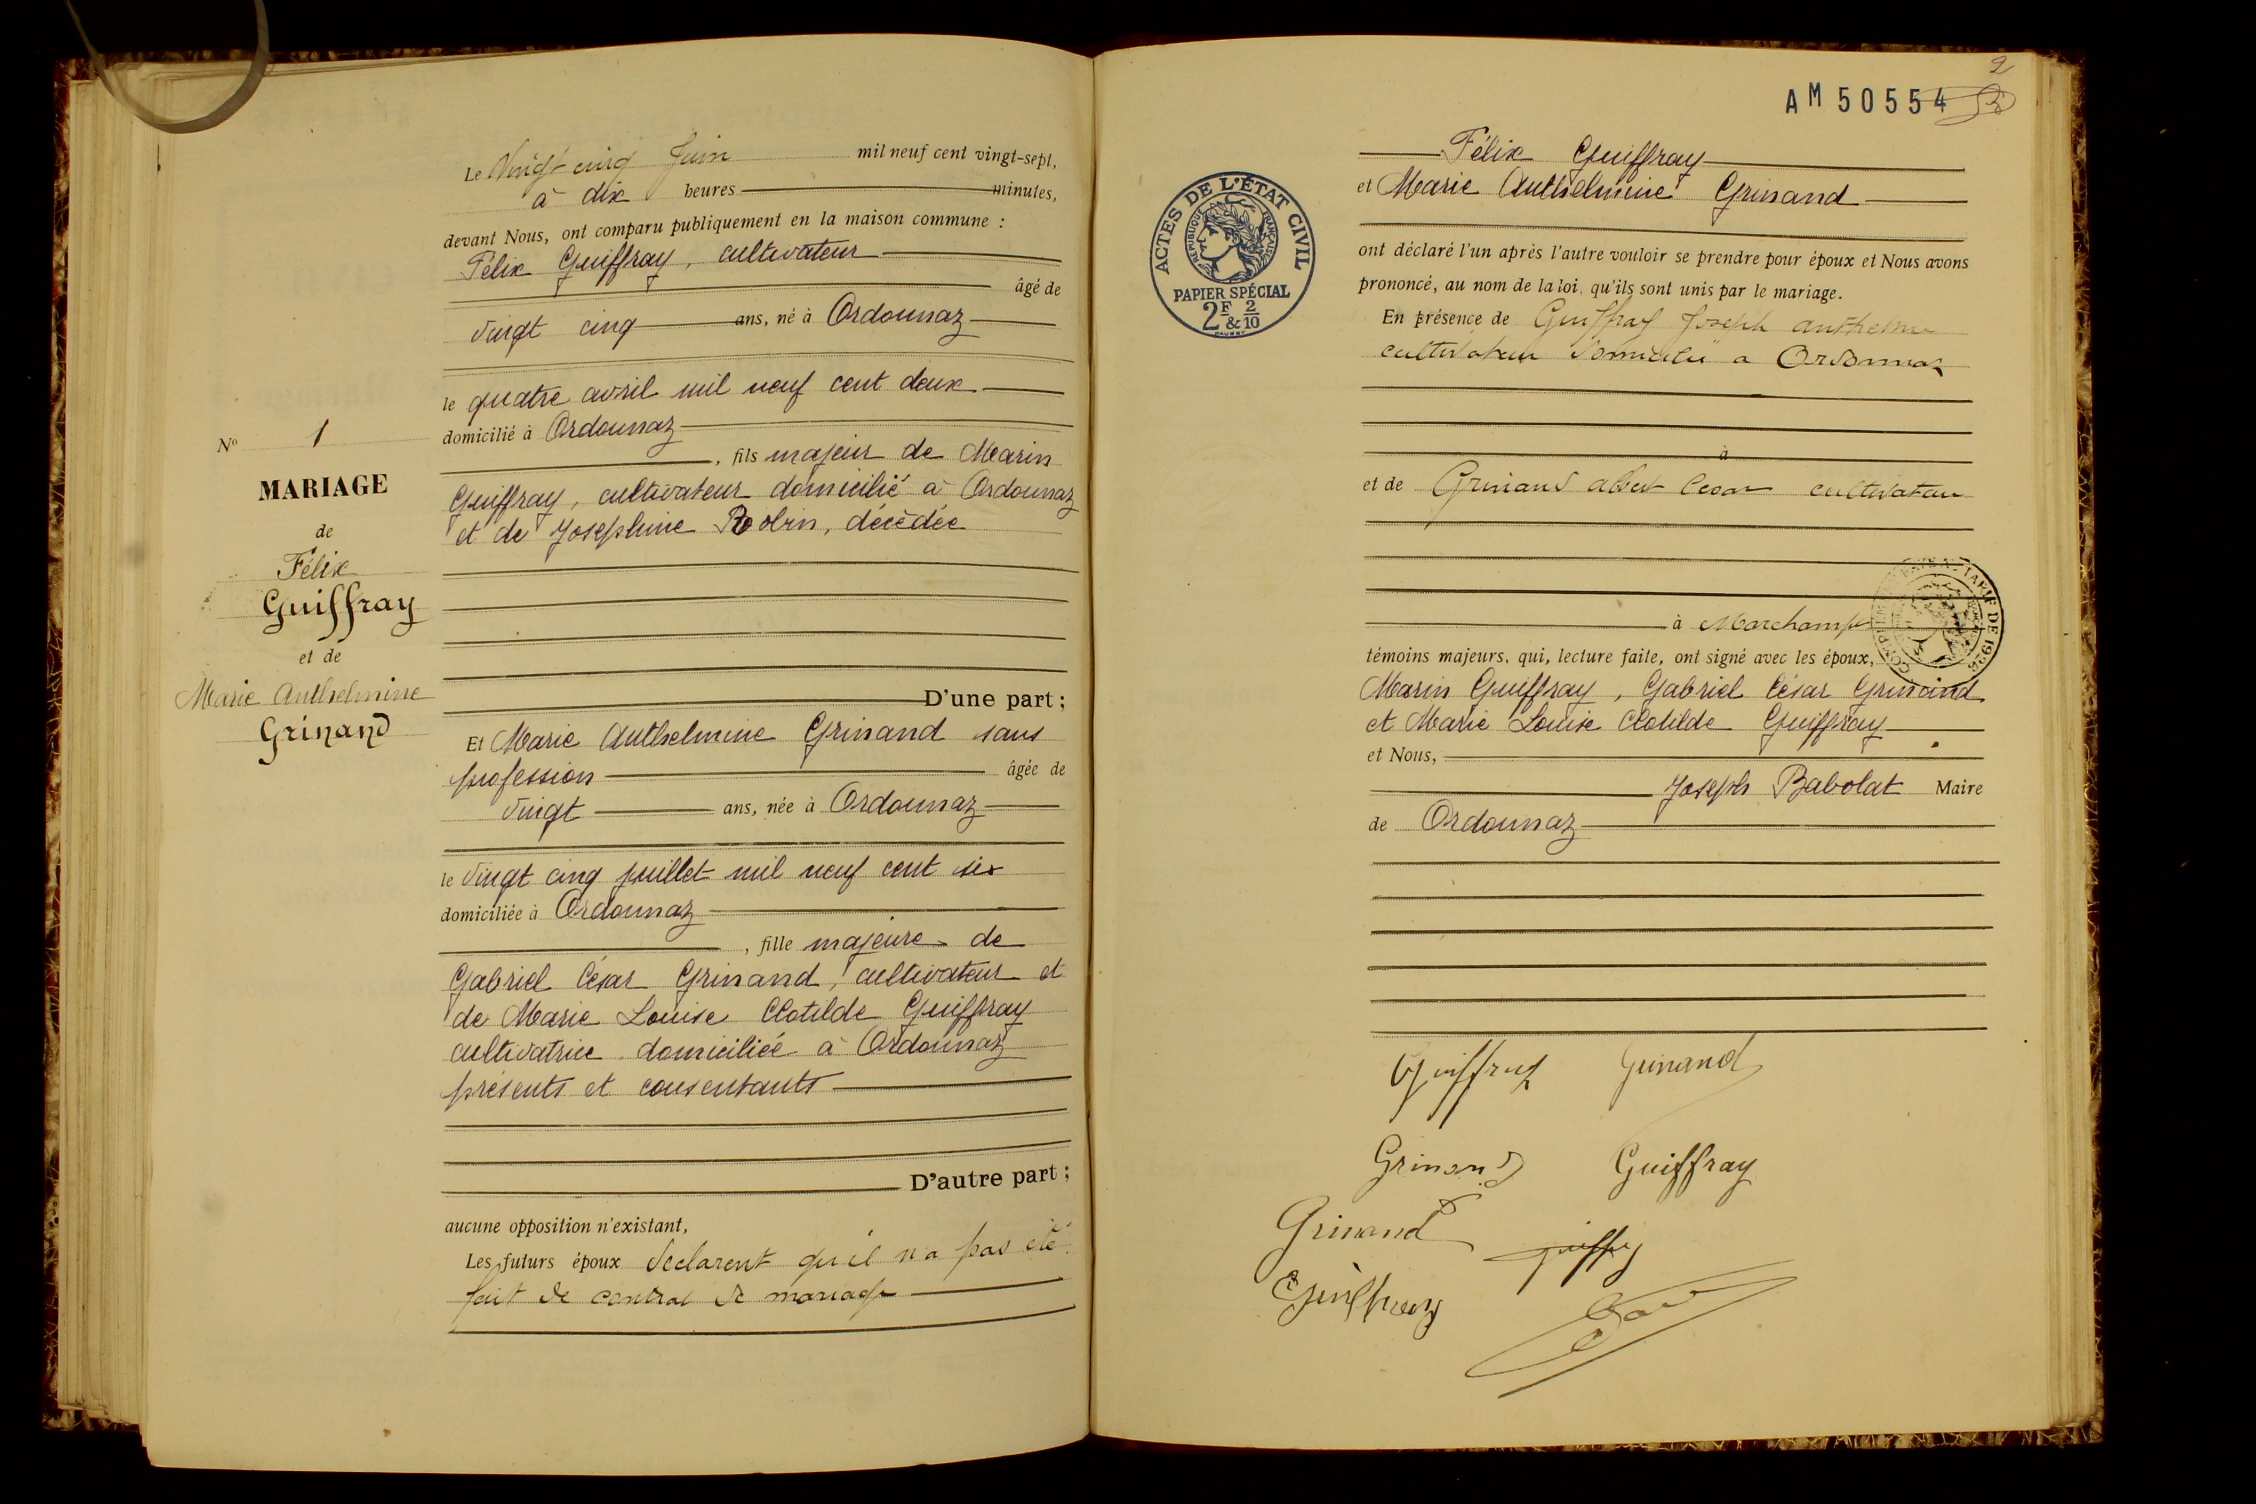 Le Vingt cinq Juin mil neuf cent vingt-sept,
à dix heures minutes,
devant Nous, ont comparu publiquement en la maison commune :
Félix Guiffray, cultivateur
âgé de
vingt cinq ans, né à Ordonnaz
le quatre avril mil neuf cent deux
domicilié à Ordonnaz
, fils majeur de Marin
Guiffray, cultivateur domicilié à Ordonnaz
et de Joséphine Robin, décédée
D'une part ;
Nº 1
MARIAGE
de
Félix
Guiffray
et de
Marie Anthelmine
Grinand
Et Marie Anthelmine Grinand sans
profession âgée de
vingt ans, née à Ordonnaz
le vingt cinq juillet mil neuf cent six
domiciliée à Ordonnaz
, fille majeure de
Gabriel César Grinand, cultivateur et
de Marie Louise Clotilde Guiffray
cultivatrice domiciliée à Ordonnaz
présents et consentants
D'autre part ;
aucune opposition n'existant,
Les futurs époux déclarent qu'il n'a pas été
fait de contrat de mariage
2
AM 50554
Félix Guiffray
et Marie Anthelmine Grinand
ACTES DE L'ÉTAT CIVIL
RÉPUBLIQUE FRANÇAISE
PAPIER SPÉCIAL
2F & 2/10
ont déclaré l'un après l'autre vouloir se prendre pour époux et Nous avons
prononcé, au nom de la loi, qu'ils sont unis par le mariage.
En présence de Guiffray Joseph anthelme
cultivateur domicilié a Ordonnaz
à
et de Grinand albert Cesar cultivateur
à Marchamp
TARIF DE 1926
témoins majeurs, qui, lecture faite, ont signé avec les époux,
Marin Guiffray, Gabriel César Grinand
et Marie Louise Clotilde Guiffray
et Nous,
Joseph Babolat Maire
de Ordonnaz
Guiffray Grinand
Grinand Guiffray
Grinand Guiffray
Guiffray